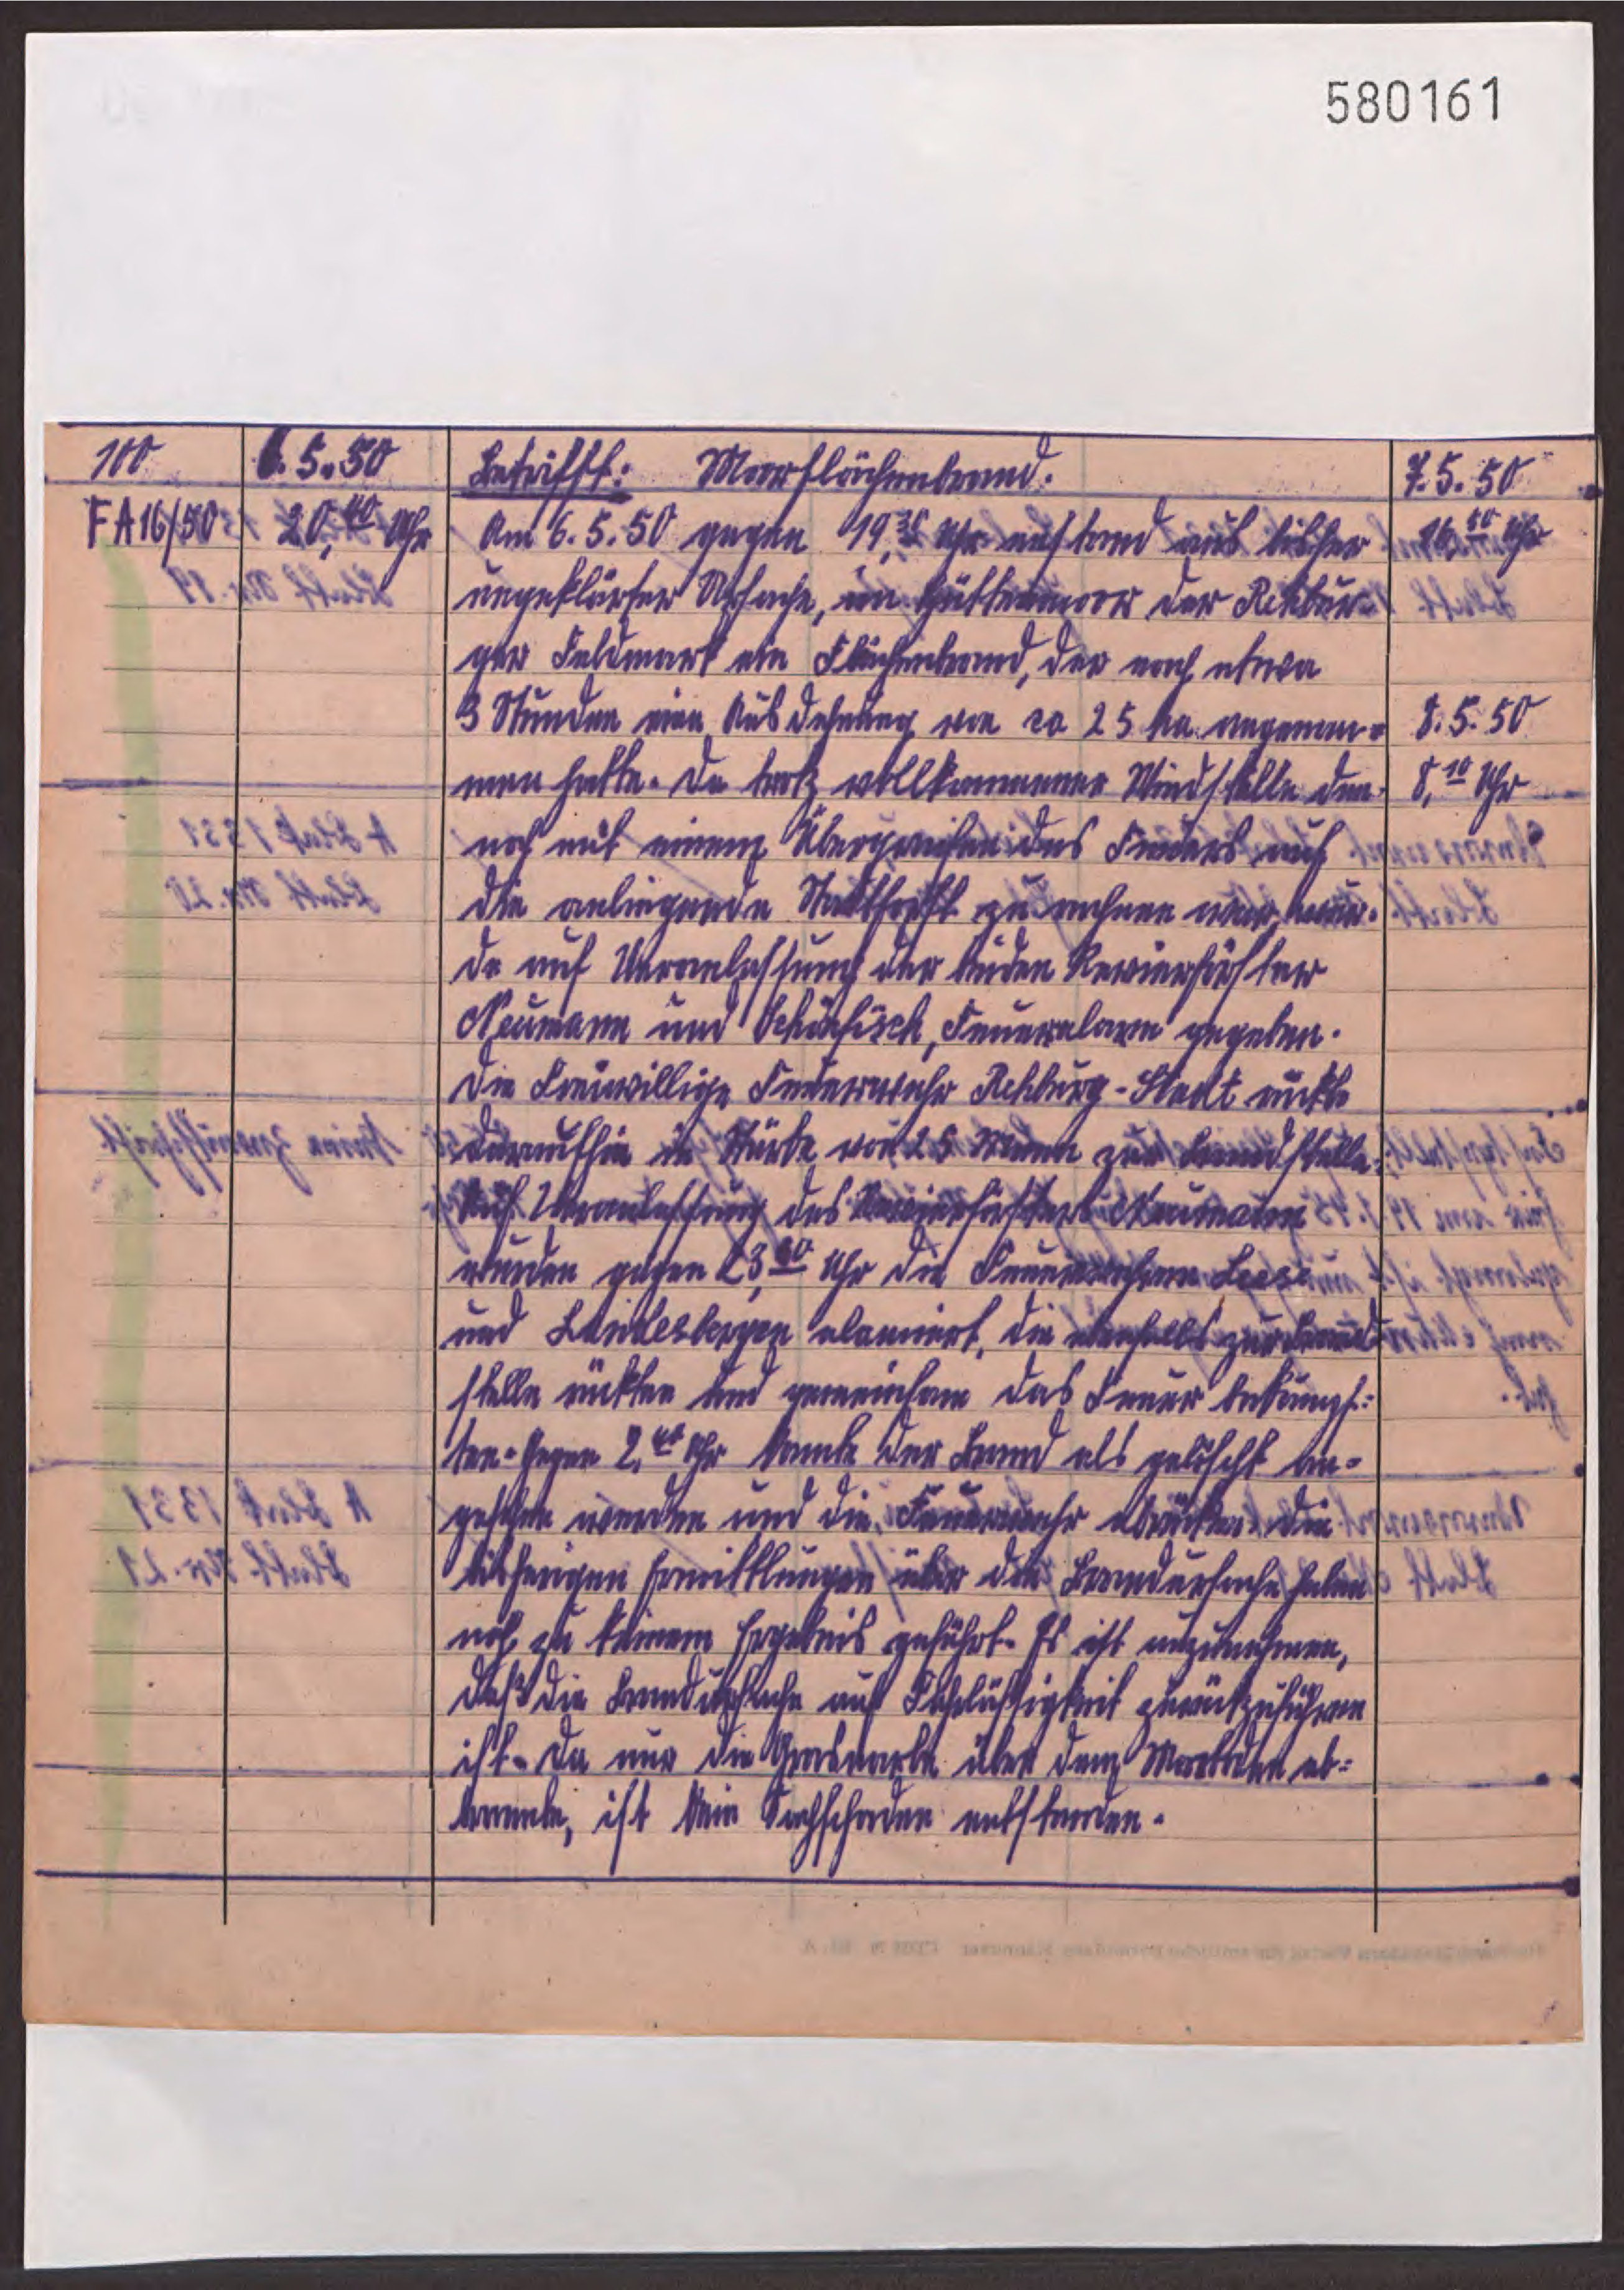 580161
100 6.5.50 Betrifft: Moorflächenbrand. 7.5.50
FA16/50 20,40 Uhr Am 6.5.50 gegen 19,30 Uhr entstand aus bisher 16,00 Uhr
ungeklärter Ursache, im Hüttenmoor der Rehbur-
ger Feldmark ein Flächenbrand, der nach etwa
3 Stunden eine Ausdehnung von ca 25 ha angenom- 8.5.50
men hatte. Da trotz vollkommener Windstille den- 8,10 Uhr
noch mit einem Übergreifen des Feuers auf
die anliegende Stadtforst zu rechnen war, wur-
de auf Veranlassung der beiden Revierförster
Neumann und Feueralarm gegeben.
Die Freiwillige Feuerwehr Rehburg-Stadt rückte
daraufhin in Stärke von 25 Mann zur Brandstelle.
Auf Veranlassung des Revierförsters Neumann
wurden gegen 23,00 Uhr die Feuerwehren Leese
und Landesbergen alarmiert, die ebenfalls zur Brand-
stelle rückten und gemeinsam das Feuer bekämpf-
ten. Gegen 2,40 Uhr konnte der Brand als gelöscht an-
gesehen werden und die Feuerwehr abrücken. Die
bisherigen Ermittlungen über die Brandursache haben
noch zu keinem Ergebnis geführt. Es ist anzunehmen,
daß die Brandursache auf Fahrlässigkeit zurückzuführen
ist. Da nur die Grasnarbe über dem Moorboden ab-
brannte, ist kein Sachschaden entstanden.